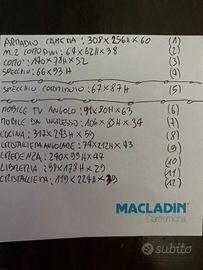 ARMADIO CAMERA: 308 X 256H X 60 (1)
M.2 COMODINI: 64 X 62H X 38 (2)
COMO': 140 X 78H X 52 (3)
SPECCHIO: 66 X 93H (4)
SPECCHIO CORRIDOIO: 67 X 87H (5)
MOBILE TV ANGOLO: 91 X 80H X 63 (6)
MOBILE DA INGRESSO: 106 X 85H X 34 (7)
CUCINA: 317 X 243H X 59 (8)
CRISTALLIERA ANGOLARE: 74 X 212H X 43 (9)
CREDENZA: 240 X 99H X 47 (10)
LIBRERIA: 98 X 178H X 29 (11)
CRISTALLIERA: 119 X 224H X 39 (12)
MACLADIN®
Claritromicina
subito